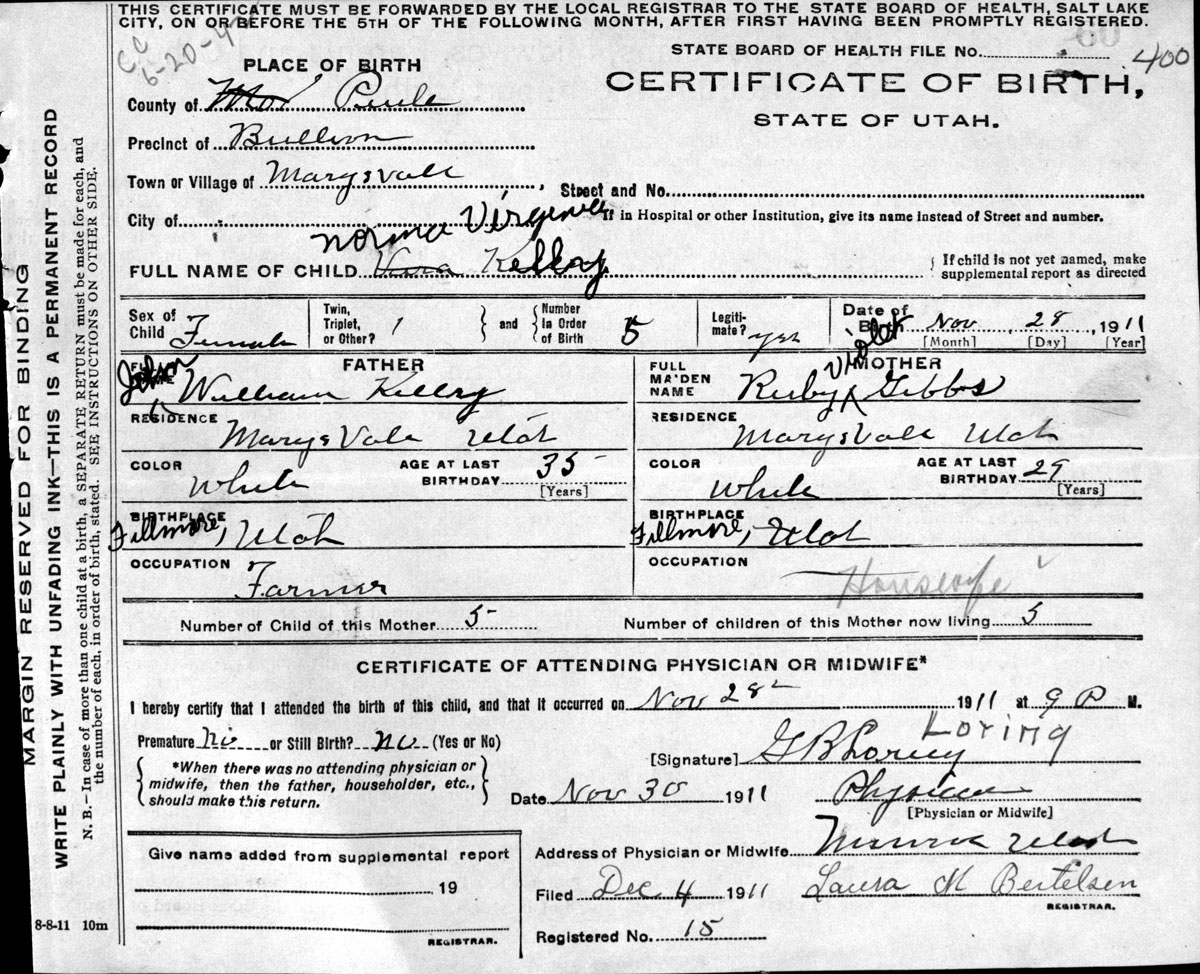 THIS CERTIFICATE MUST BE FORWARDED BY THE LOCAL REGISTRAR TO THE STATE BOARD OF HEALTH, SALT LAKE
CITY, ON OR BEFORE THE 5TH OF THE FOLLOWING MONTH, AFTER FIRST HAVING BEEN PROMPTLY REGISTERED.
C.C
6-20-4
STATE BOARD OF HEALTH FILE No. 400
PLACE OF BIRTH
CERTIFICATE OF BIRTH,
STATE OF UTAH.
County of Piute
Precinct of Bullion
Town or Village of Marysvale, Street and No.
City of If in Hospital or other Institution, give its name instead of Street and number.
Norma Virginia
FULL NAME OF CHILD Kelley
If child is not yet named, make
supplemental report as directed
Sex of Child Female
Twin, Triplet, or Other? 1 and Number in Order of Birth 5
Legitimate? yes
Date of Birth Nov, 28, 1911
[Month] [Day] [Year]
FATHER
FULL NAME William
MOTHER
FULL MAIDEN NAME Ruby Violet Gibbs
RESIDENCE Marysvale Utah
RESIDENCE Marysvale Utah
COLOR White AGE AT LAST BIRTHDAY 35 [Years]
COLOR White AGE AT LAST BIRTHDAY 29 [Years]
BIRTHPLACE Fillmore, Utah
BIRTHPLACE Fillmore, Utah
OCCUPATION Farmer
OCCUPATION Housewife
Number of Child of this Mother 5 Number of children of this Mother now living 5
CERTIFICATE OF ATTENDING PHYSICIAN OR MIDWIFE*
I hereby certify that I attended the birth of this child, and that it occurred on Nov 28 1911 at 9 P M.
Premature No or Still Birth? No (Yes or No)
Loring
[Signature] G B Loring
*When there was no attending physician or
midwife, then the father, householder, etc.,
should make this return.
Date Nov 30 1911 Physician
[Physician or Midwife]
Give name added from supplemental report
19
REGISTRAR.
Address of Physician or Midwife Utah
Filed Dec 4 1911 Laura M Bertelsen
REGISTRAR.
Registered No. 15
8-8-11 10m
MARGIN RESERVED FOR BINDING
WRITE PLAINLY WITH UNFADING INK—THIS IS A PERMANENT RECORD
N. B.—In case of more than one child at a birth, a SEPARATE RETURN must be made for each, and
the number of each, in order of birth, stated. SEE INSTRUCTIONS ON OTHER SIDE.